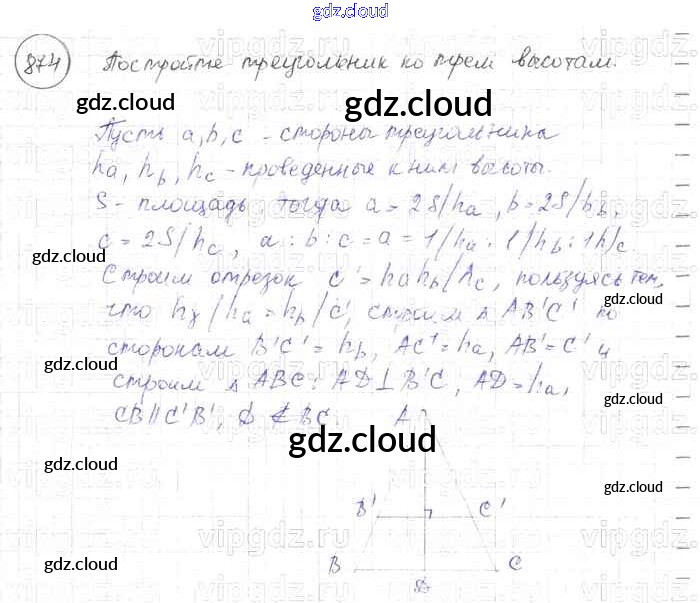 gdz.cloud
874 Постройте треугольник по трем высотам.
gdz.cloud gdz.cloud
Пусть a, b, c - стороны треугольника
ha, hb, hc - проведенные к ним высоты.
S - площадь, тогда a = 2S/ha, b = 2S/hb,
c = 2S/hc, a : b : c = a = 1/ha : 1/hb : 1h/c.
gdz.cloud
Строим отрезок c' = hahb/hc, пользуясь тем,
gdz.cloud
что /ha = hb/c', строим Δ AB'C' по
gdz.cloud
сторонам B'C' = hb, AC' = ha, AB' = C' и
gdz.cloud
строим Δ ABC: AD ⊥ B'C, AD = ha,
gdz.cloud
CB || C'B', BC. A
gdz.cloud
gdz.cloud
gdz.cloud
B' C'
gdz.cloud gdz.cloud
B C
vipgdz.ru